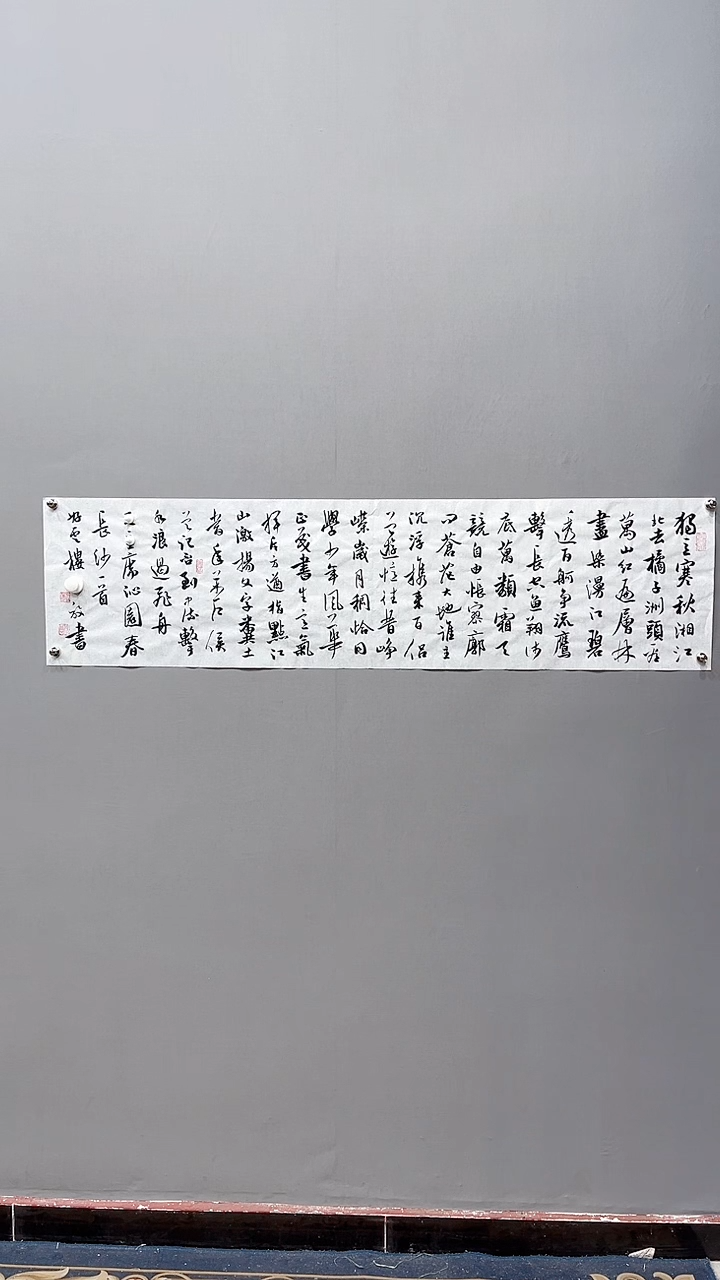 獨立寒秋湘江
北去橘子洲頭看
萬山紅遍層林
盡染漫江碧
透百舸爭流鷹
擊長空魚翔淺
底萬類霜天
競自由悵寥廓
問蒼茫大地誰主
沉浮攜來百侶
曾遊憶往昔崢
嶸歲月稠恰同
學少年風華
正茂書生意氣
揮斥方遒指點江
山激揚文字糞土
當年萬戶侯
曾記否到中流擊
水浪遏飛舟
毛主席沁園春
長沙一首
樓書